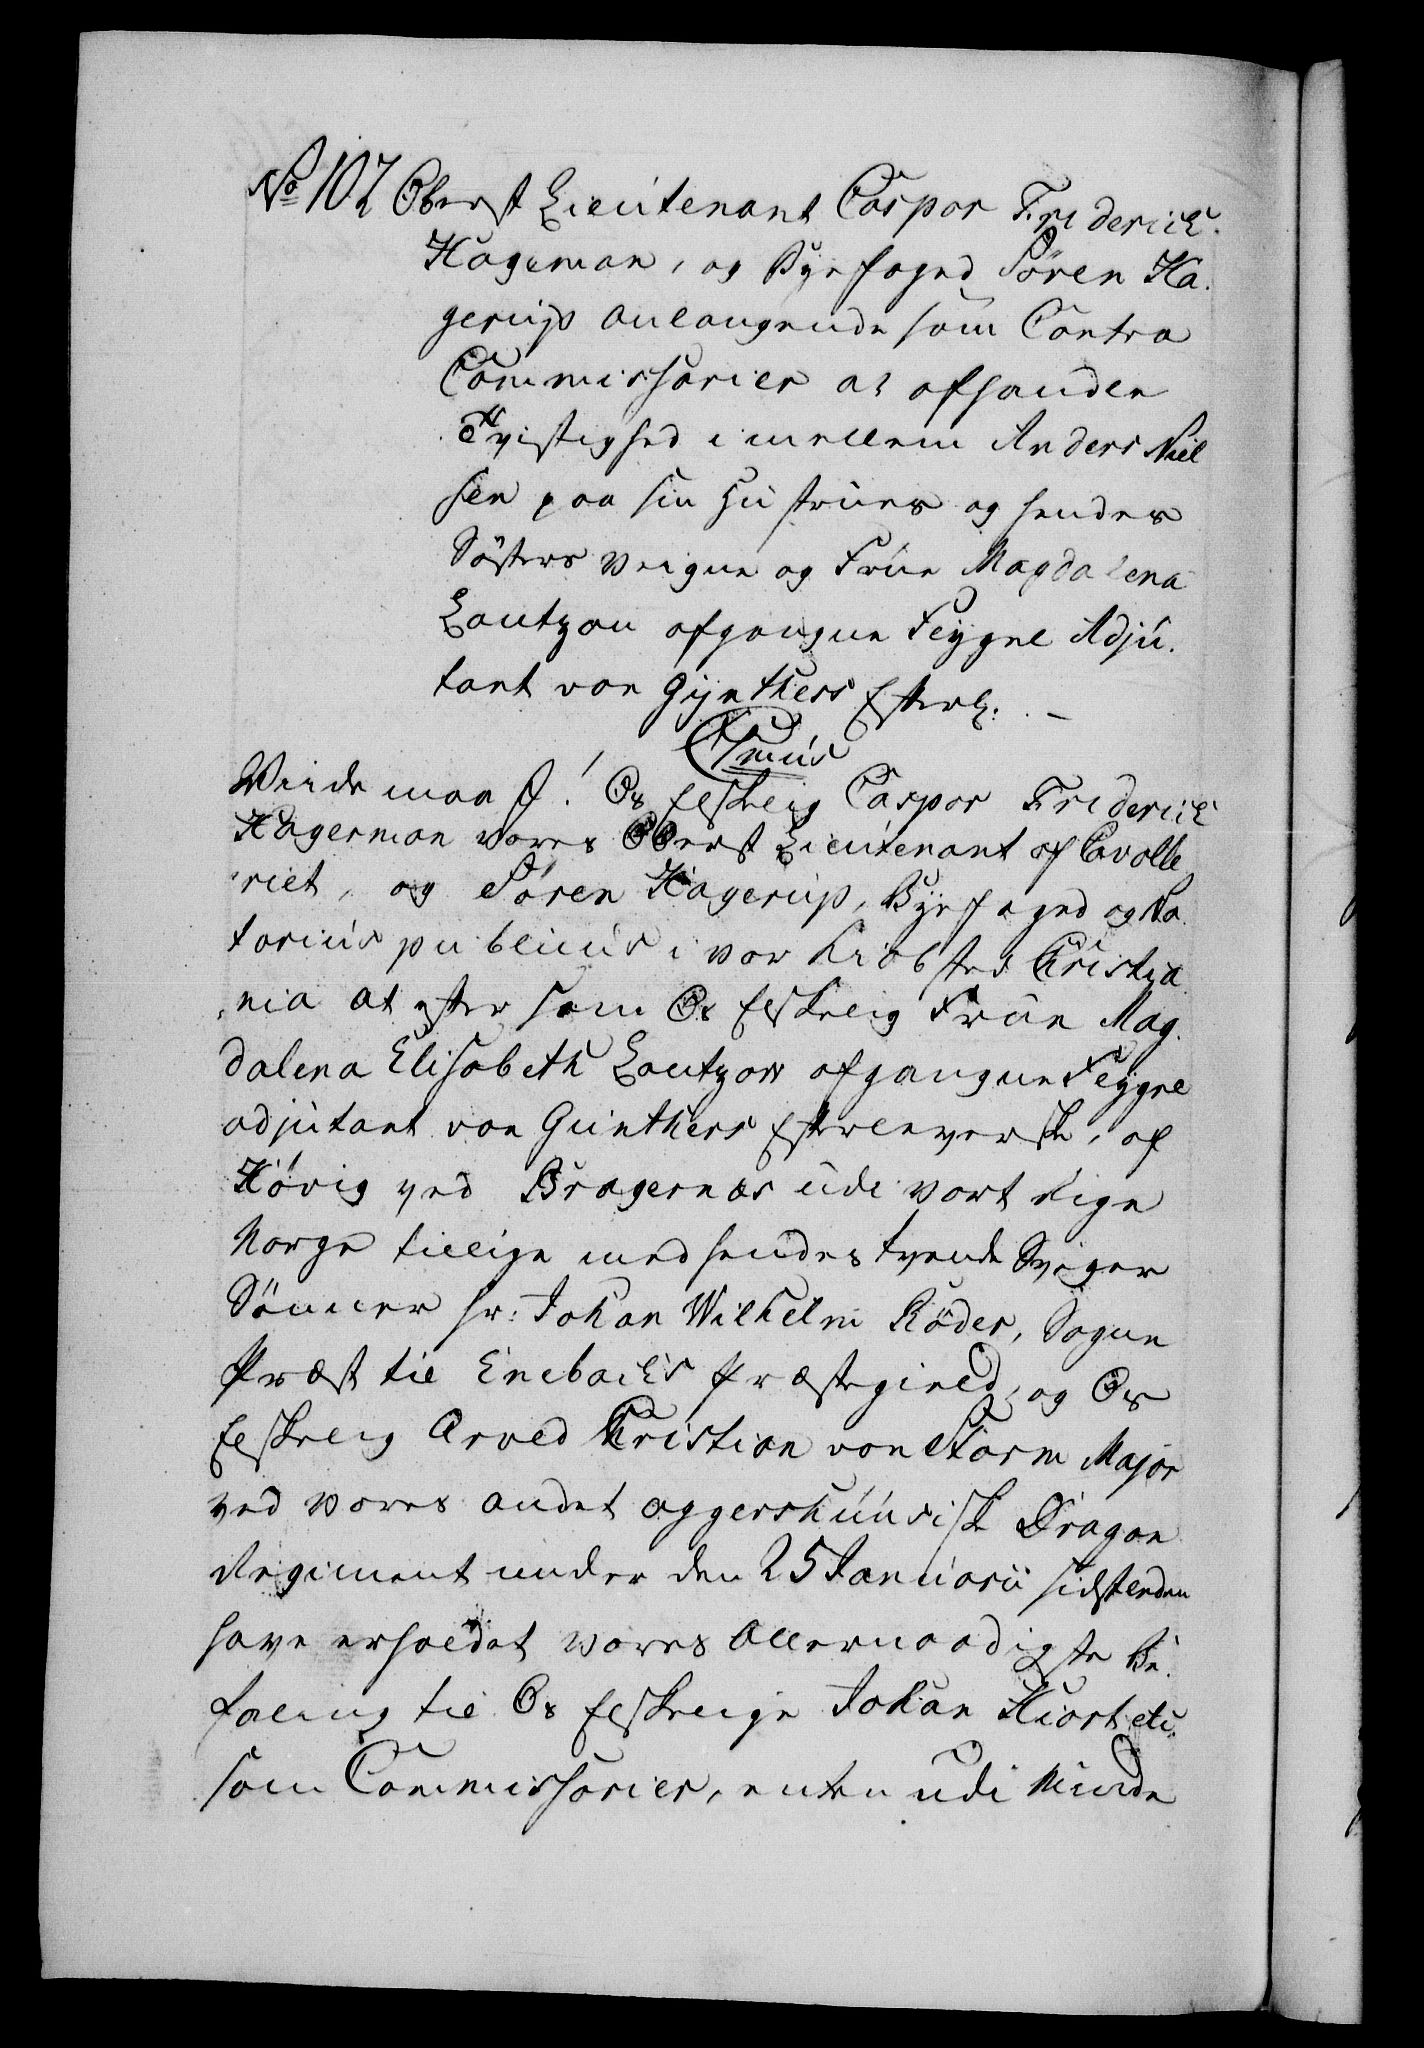 No 102 Oberst Lieutenant Caspar Friderich
Hageman, og Byefoged Sören Ha-
gerups anlangende som Contra
Commissarier at afhandle
Tvistighed imellem Anders Niel
sen paa sin Hustrues og hendes
Søsters Veigne og Frue Magdalena
Lautzou afgangne Feygne Adju-
tant von Gynthers Efterl:
Cxtmus
Viide maa I! Os Elskelig Caspar Friderich
Hagerman vores Oberst Lieutenant af Cavalle
riet, og Sören Hagerup, Byefoged og No-
tarius publicus i vor Kiøbsted Christia
nia at efter som Os Elskelig Frue Mag-
dalena Elisabeth Lautzow afgangne Feygne
adjutant von Günthers Efterleverske, af
Høvig ved Bragernæs udi vort Rige
Norge tillige med hendes tvende Sviger
Sönner Hr: Johan Wilhelm Röder, Sogne
Præst til Enebachs Præstegield, og Os
Elskelig Arved Christian von Storm Major
ved vores andet aggershuusisk Dragon
Regiment under den 25 Januarii sidstleden
have erholdet vores Allernaadigste Be-
faling til Os Elskelige Johan Hiort etc:
som Commissarier, enten udi Minde